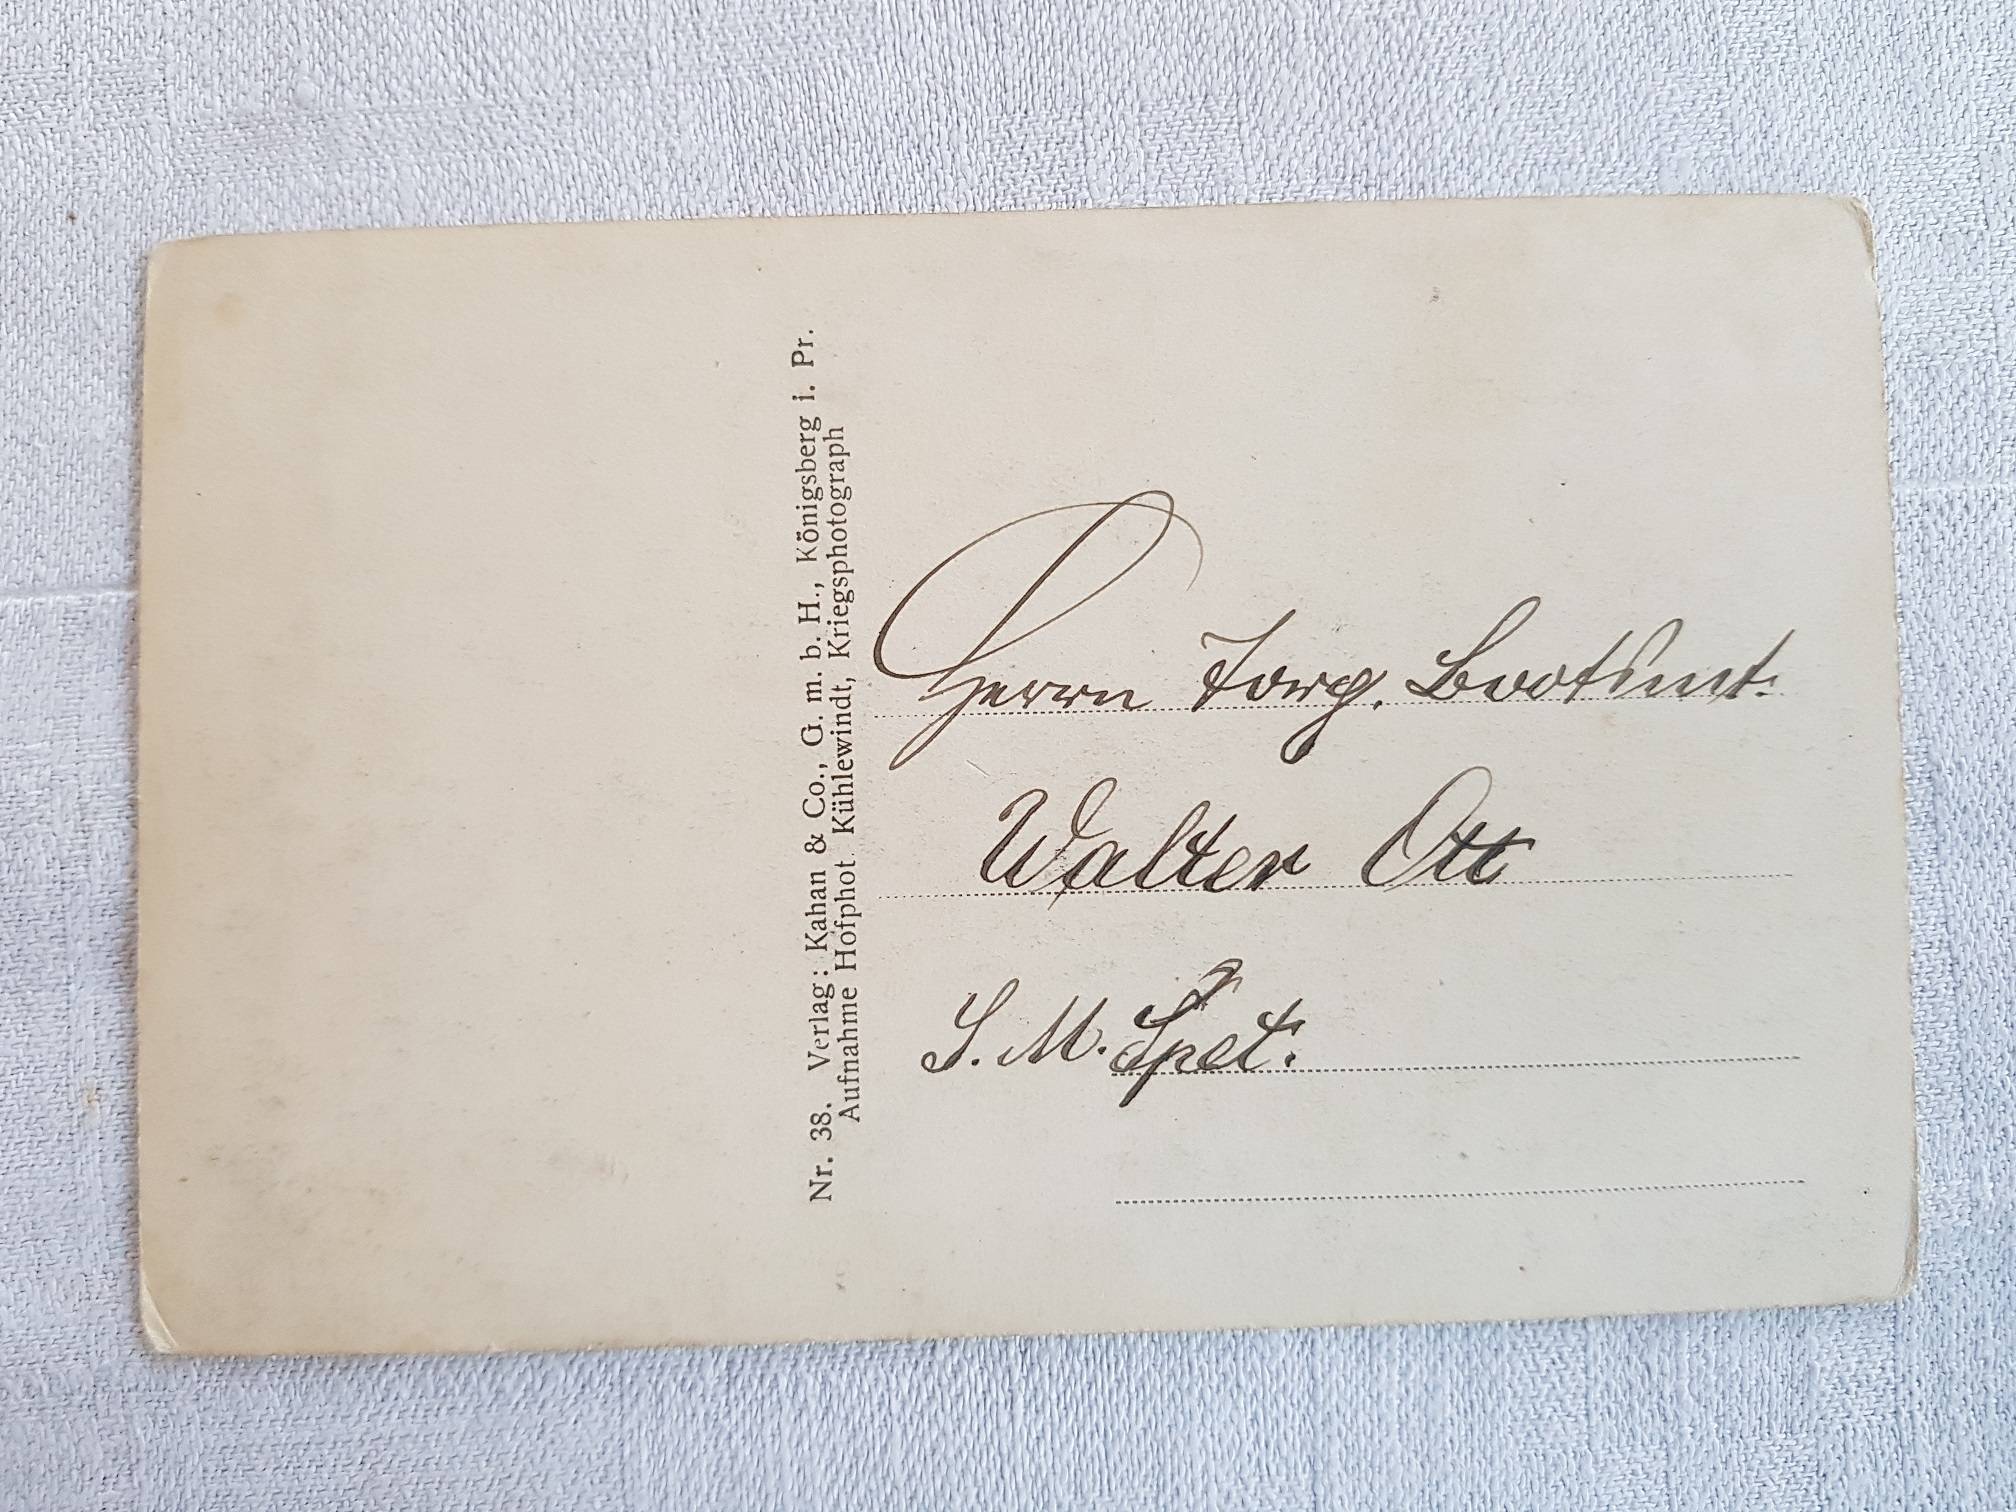 Nr. 38. Verlag: Kahan & Co., G. m. b. H., Königsberg i. Pr.
Aufnahme Hofphot. Kühlewindt, Kriegsphotograph
Herrn Torp. Bootsmt.
Walter Ott
S. M. Tpbt.